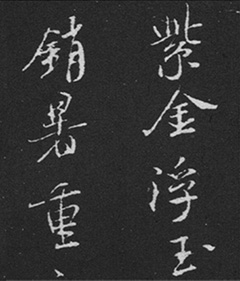 紫金浮玉
銷暑重、